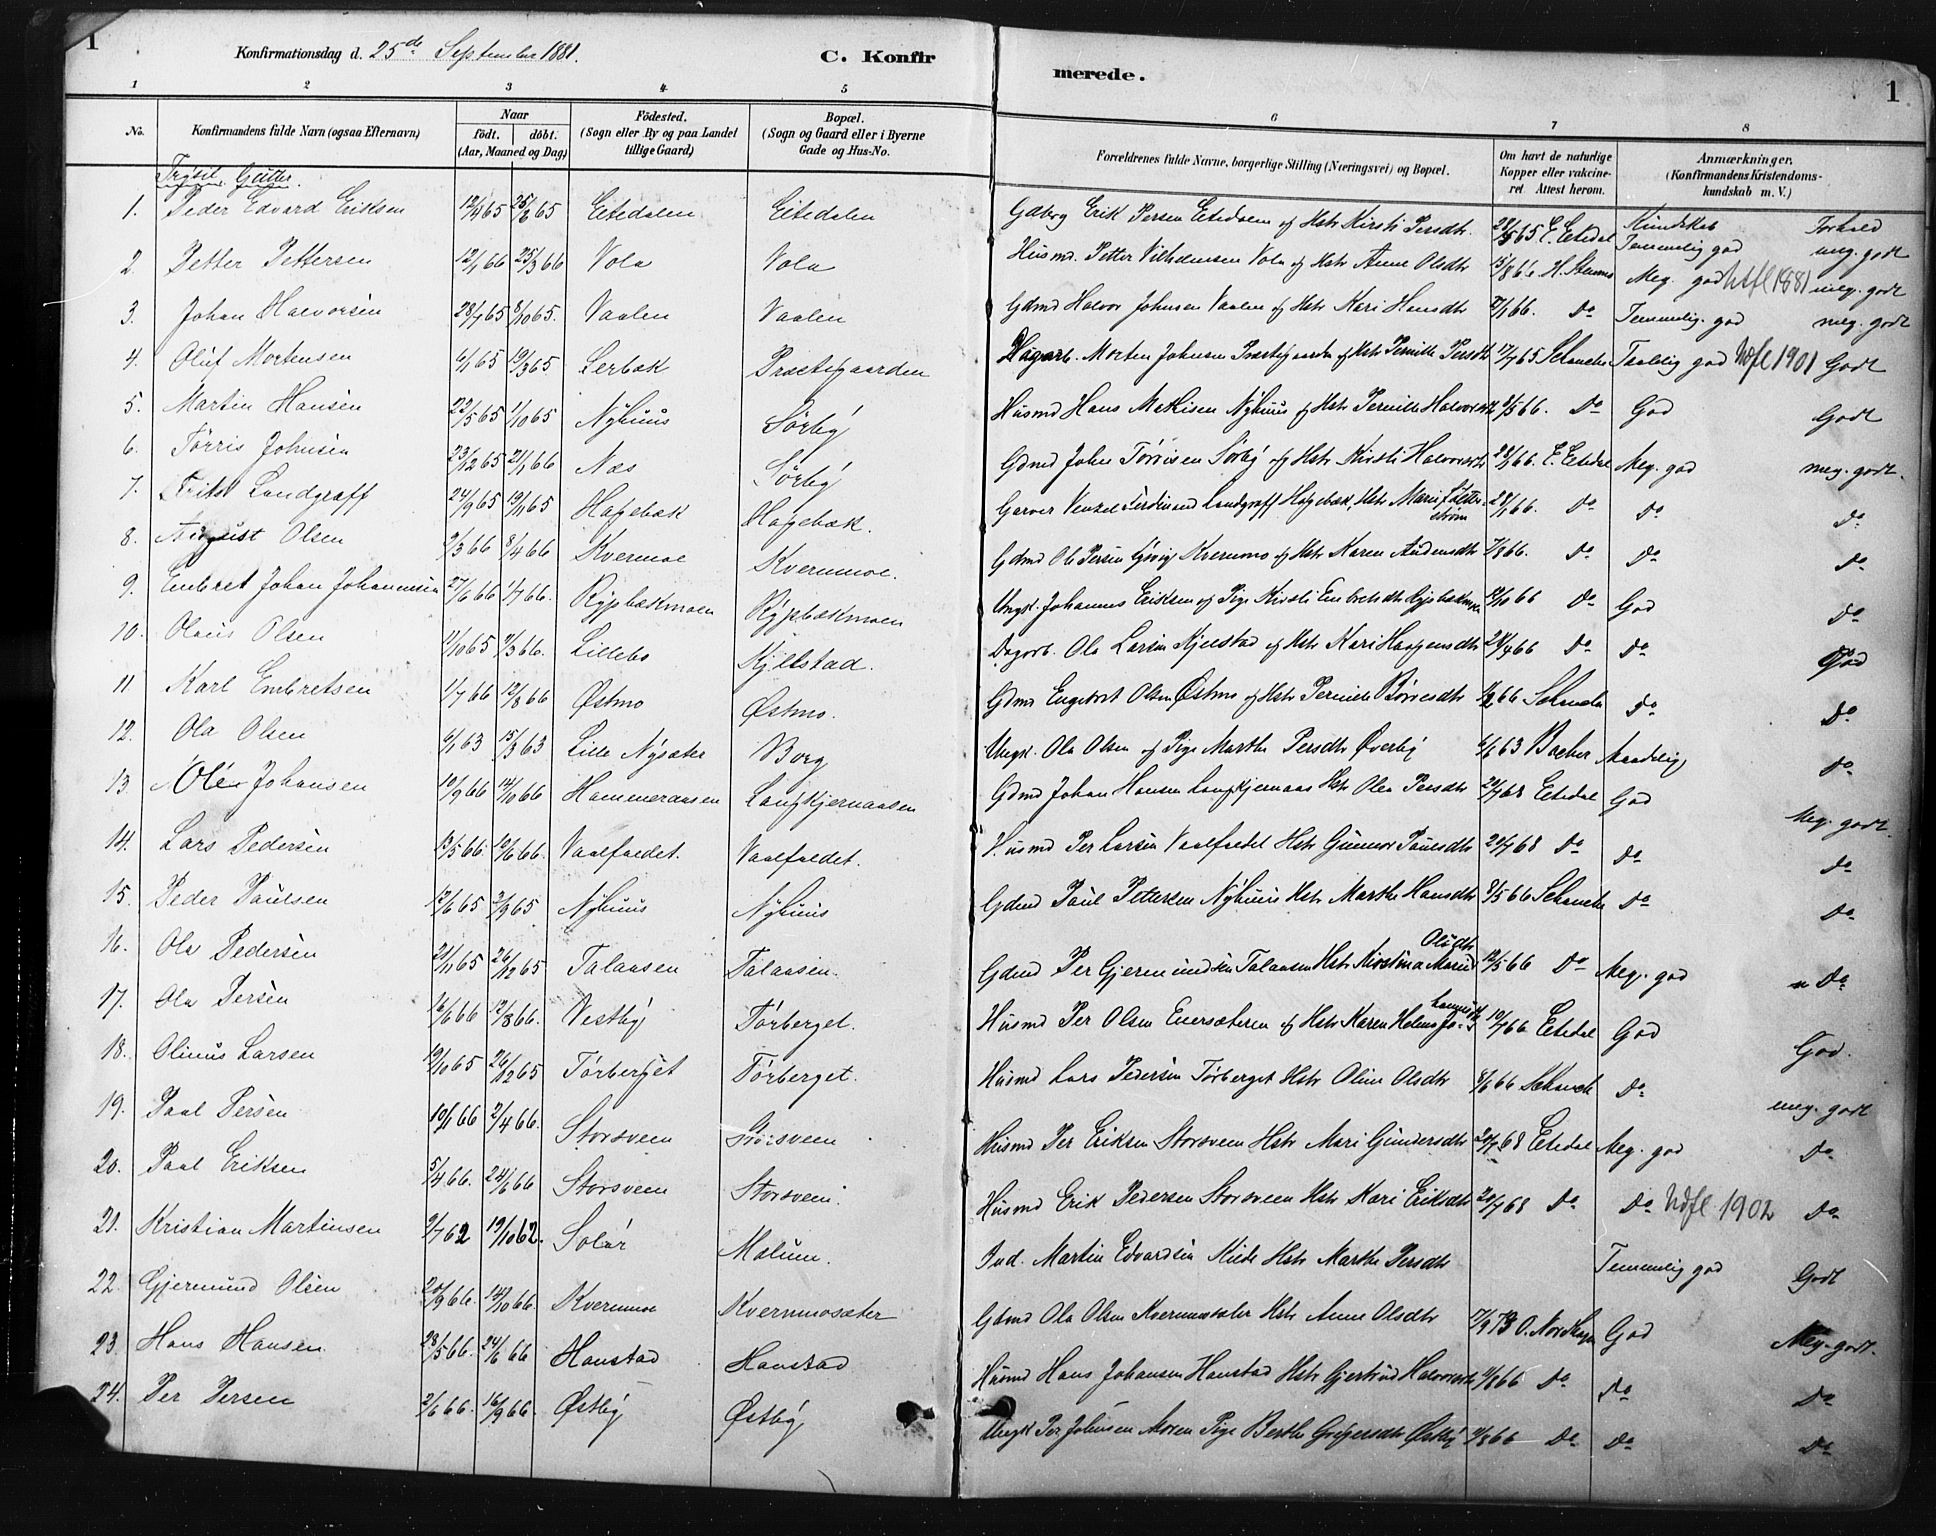 1
Konfirmationsdag d. 25de September 1881.
C. Konfir
merede.
1
1 2 3 4 5 6 7 8
No.
Konfirmandens fulde Navn (ogsaa Efternavn)
Naar
födt. döbt.
(Aar, Maaned og Dag)
Födested.
(Sogn eller By og paa Landet
tillige Gaard)
Bopæl.
(Sogn og Gaard eller i Byerne
Gade og Hus-No.
Forældrenes fulde Navne, borgerlige Stilling (Næringsvei) og Bopæl.
Om havt de naturlige
Kopper eller vakcine-
ret Attest herom.
Anmærkninger.
(Konfirmandens Kristendoms-
kundskab m. V.)
Trysil Gutter.
Kundskab Forhold
1. Peder Edvard Eriksen 12/4 65 25/6 65 Eitedalen Eitedalen Gdbrg Erik Persen Etedalen og Hstr Kirsti Persdtr. 28/5 65 E. Etedal Temmelig god meg. godt
2. Petter Pettersen 12/1 66 25/3 66 Vola Vola Husmd. Petter Vilhelmsen Vola og Hstr Anne Olsdtr 15/8 66 H. Meg. god Udfl 1881 meg. godt
3. Johan Halvorsen 28/7 65 8/10 65. Vaalen Vaalen Gdmd Halvor Johnsen Vaalen og Hstr Kari Hansdtr 2/1 66. Do Temmelig god meg. godt
4. Oluf Mortensen 6/1 65 19/3 65 Lerbæk Præstegaarden Dagarb. Morten Johnsen Præstegaarden og Hstr Pernille Persdtr 17/7 65 Schanche Taalelig god Udfl 1901 Godt
5. Martin Hansen 22/5 65 1/10 65 Nyhuus Sörby Husmd Hans Mathisen Nyhuus og Hstr Pernille Halvorsdtr 8/5 66. Do God Godt
6. Törris Johnsen 23/12 65 21/1 66 Næs Sörby Gdmd John Törrisen Sörby og Hstr Kirsti Halvorsdtr 28/1 66. E. Etedal Meg. god meg. godt.
7. Frits Landgraff 24/9 65 19/11 65 Hagebæk Hagebæk. Garver Venzel Ferdinand Landgraff Hagebæk, Hstr Marie 28/1 66. Do Do Do
8. August Olsen 9/3 66 8/4 66 Kvermoe Kvernmoe. Gdmd Ole Persen Kvernmo og Hstr Karen Andersdtr 7/8 66. Do Do Do
9. Embret Johan Johannesen 27/6 66 1/7 66. Rypbækmoen Rypbækmoen Ungk. Johannes Eriksen og Pige Kirsti Embretsdtr Rypbækmoen 12/10 66 Do God Do
10. Olaus Olsen 17/10 65 9/3 66. Lillebo Kjelstad. Dagarb. Ola Larsen Kjelstad og Hstr Kari Haagensdtr 28/4 66 Do Do God
11 Karl Embretsen 1/7 66 12/8 66 Østmo Østmo. Gdmd Engebret Olsen Østmo og Hstr Pernille Börresdtr Schanche Do Do
12. Ola Olsen 6/1 63 15/3 63 Lille Nysæter Borg Ungk. Ola Olsen og Pige Marthe Persdtr Överby 6/6 63 Bacher Maadelig Do
13. Ole Johansen 10/9 66 14/10 66 Hammeraasen Langkjernaasen Gdmd Johan Hansen Langkjernaas Hstr Olea Persdtr 20/7 68 Etedal God Meg. godt.
14. Lars Pedersen 13/5 66. 10/6 66. Vaalfaldet. Vaalfaldet. Husmd Per Larsen Vaalfaldet Hstr Gunnor Paulsdtr 20/7 68 Do Do Do
15. Peder Paulsen 12/6 65 2/9 65 Nyhuus Nyhuus Gdmd Paul Pettersen Nyhuus Hstr Marthe Hansdtr 8/5 66 Schanche Do Do
16. Ola Pedersen 21/11 65 26/12 65 Talaasen Talaasen. Gdmd Per Gjermundsen Talaasen Hstr Kirstina Marie Olsdtr 12/5 66 Do Meg. god Do
17. Ola Persen 16/6 66 12/8 66. Vestby Törberget. Husmd Per Olsen Enersæteren og Hstr Karen Helene 10/7 66 Etedal God God.
18. Olinus Larsen 19/10 65 26/12 65 Törberget Törberget. Husmd Lars Pedersen Törberget Hstr Oline Olsdtr 8/6 66 Schanch Do meg. godt
19. Paal Persen 10/1 66 2/4 66. Storsveen Storsveen Husmd Per Eriksen Storsveen Hstr Mari Gundersdtr 20/7 68 Etedal Meg. god Do
20. Paal Eriksen 5/4 66. 24/6 66 Storsveen Storsveen. Husmd Erik Pedersen Storsveen Hstr Kari Eriksdtr 20/7 68 Do Do Udfl 1902 Do
21. Kristian Martinsen 9/7 62 19/10 62. Solör Malum. Ind. Martin Edvardsen Hstr Marthe Persdtr Temmelig god Godt
22. Gjermund Olsen 20/9 66. 14/10 66. Kvernmoe Kvernmosæter Gdmd Ola Olsen Kvernmosæter Hstr Anne Olsdtr 17/9 73 O. God Meg. godt.
23. Hans Hansen 28/5 66. 24/6 66 Hanstad Hanstad Husmd Hans Johansen Hanstad Hstr Gjertrud Halvorsdtr 11/8 66 Do Do Do
24. Per Persen 2/6 66. 16/9 66. Østby Østby Ungk Per Johnsen Moren Pige Berthe Gregersdtr Østby 11/8 66 Do Do Do